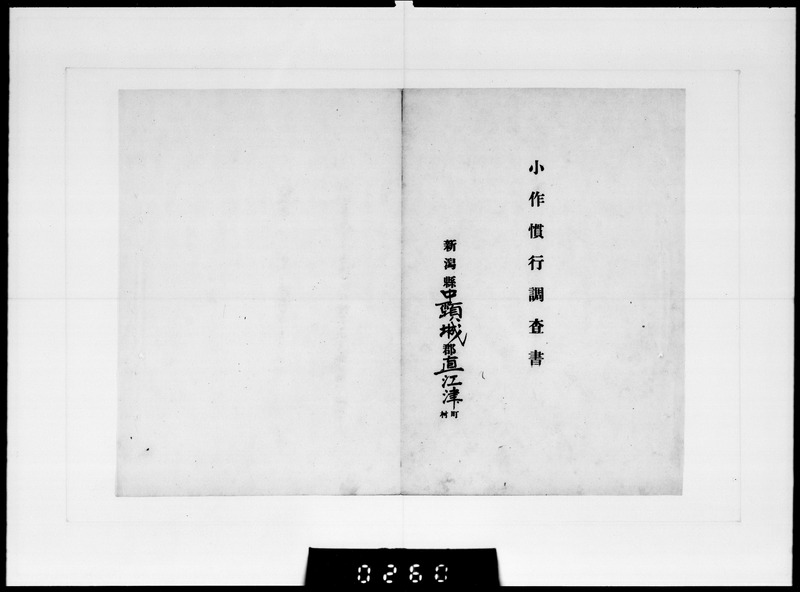 小作慣行調査書
新潟縣中頸城郡直江津町村
0260